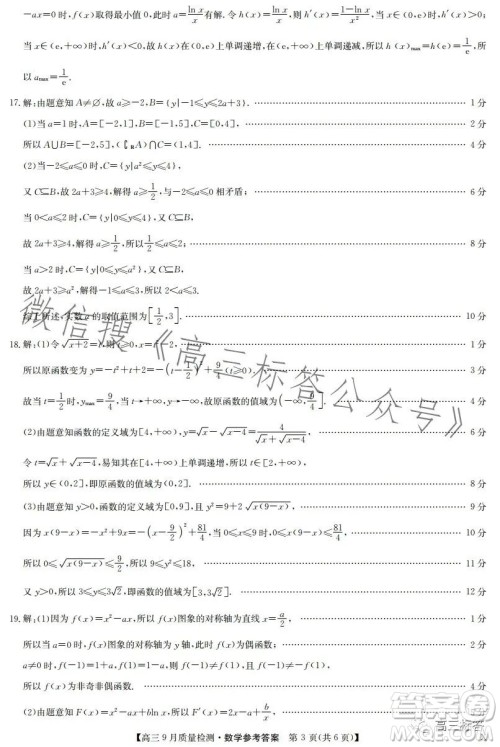 -ax=0时,f(x)取得最小值0,此时a=ln x/x有解. 令h(x)=ln x/x,则h′(x)=(1-ln x)/x²,当x∈(0,e)时,h′(x)>0;
当x∈(e,+∞)时,h′(x)<0,故h(x)在(0,e)上单调递增,在(e,+∞)上单调递减,所以h(x)max=h(e)=1/e,所
以amax=1/e.
17.解:由题意知A≠∅,故a≥-2,B={y|-1≤y≤2a+3}. 1分
(1)当a=1时,A=[-2,1],B=[-1,5],C=[0,4], 2分
所以A∪B=[-2,5],(∁RA)∩C=(1,4]. 4分
(2)当-2≤a≤0时,C={y|a²≤y≤4},
又C⊆B,故2a+3≥4,解得a≥1/2,与-2≤a≤0相矛盾; 6分
当0<a≤2时,C={y|0≤y≤4},又C⊆B,
故2a+3≥4,解得a≥1/2,所以1/2≤a≤2; 8分
当a>2时,C={y|0≤y≤a²},又C⊆B,
故2a+3≥a²,解得-1≤a≤3,所以2<a≤3.
综上所述,实数a的取值范围为[1/2,3]. 10分
18.解:(1)令√(x+2)=t,则t≥0,x=t²-2, 1分
所以原函数变为y=-t²+t+2=-(t-1/2)²+9/4(t≥0). 2分
故当t=1/2时,ymax=9/4,当t→+∞时,y→-∞,故原函数的值域为(-∞,9/4]. 4分
(2)由题意知函数的定义域为[4,+∞),y=√x-√(x-4)=4/(√x+√(x-4)). 6分
令t=√x+√(x-4),易知其在[4,+∞)上单调递增,
所以t≥2,则原函数的值域为(0,2]. 8分
(3)由题意知y>0,函数的定义域为[0,9],且y²=9+2√(x(9-x)). 9分
因为x(9-x)=-x²+9x=-(x-9/2)²+81/4,当0≤x≤9时,0≤x(9-x)≤81/4,
所以0≤√(x(9-x))≤9/2,所以9≤y²≤18,
又y>0,所以3≤y≤3√2,即原函数的值域为[3,3√2]. 12分
19.解:(1)因为f(x)=x²-ax,所以f(x)图象的对称轴为直线x=a/2, 1分
所以当a=0时,f(x)图象的对称轴为y轴,此时f(x)为偶函数; 2分
a≠0时,f(-1)=1+a,f(1)=1-a,所以f(-1)≠f(1),f(-1)≠-f(1),
所以f(x)为非奇非偶函数. 4分
(2)由题意知F(x)=x²-ax+bln x,所以F′(x)=2x-a+b/x,
【高三9月质量检测·数学参考答案 第3页(共6页)】
微信搜《高三标答公众号》
高三标答